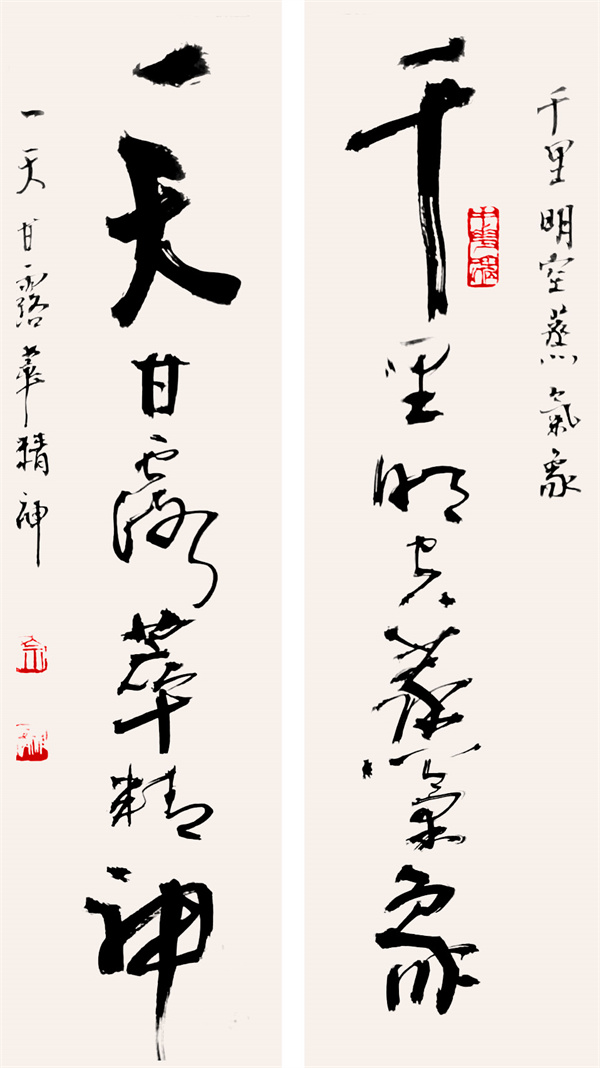 千里明空蒸氣象
千里明空蒸氣象
一天甘露萃精神
一天甘露萃精神